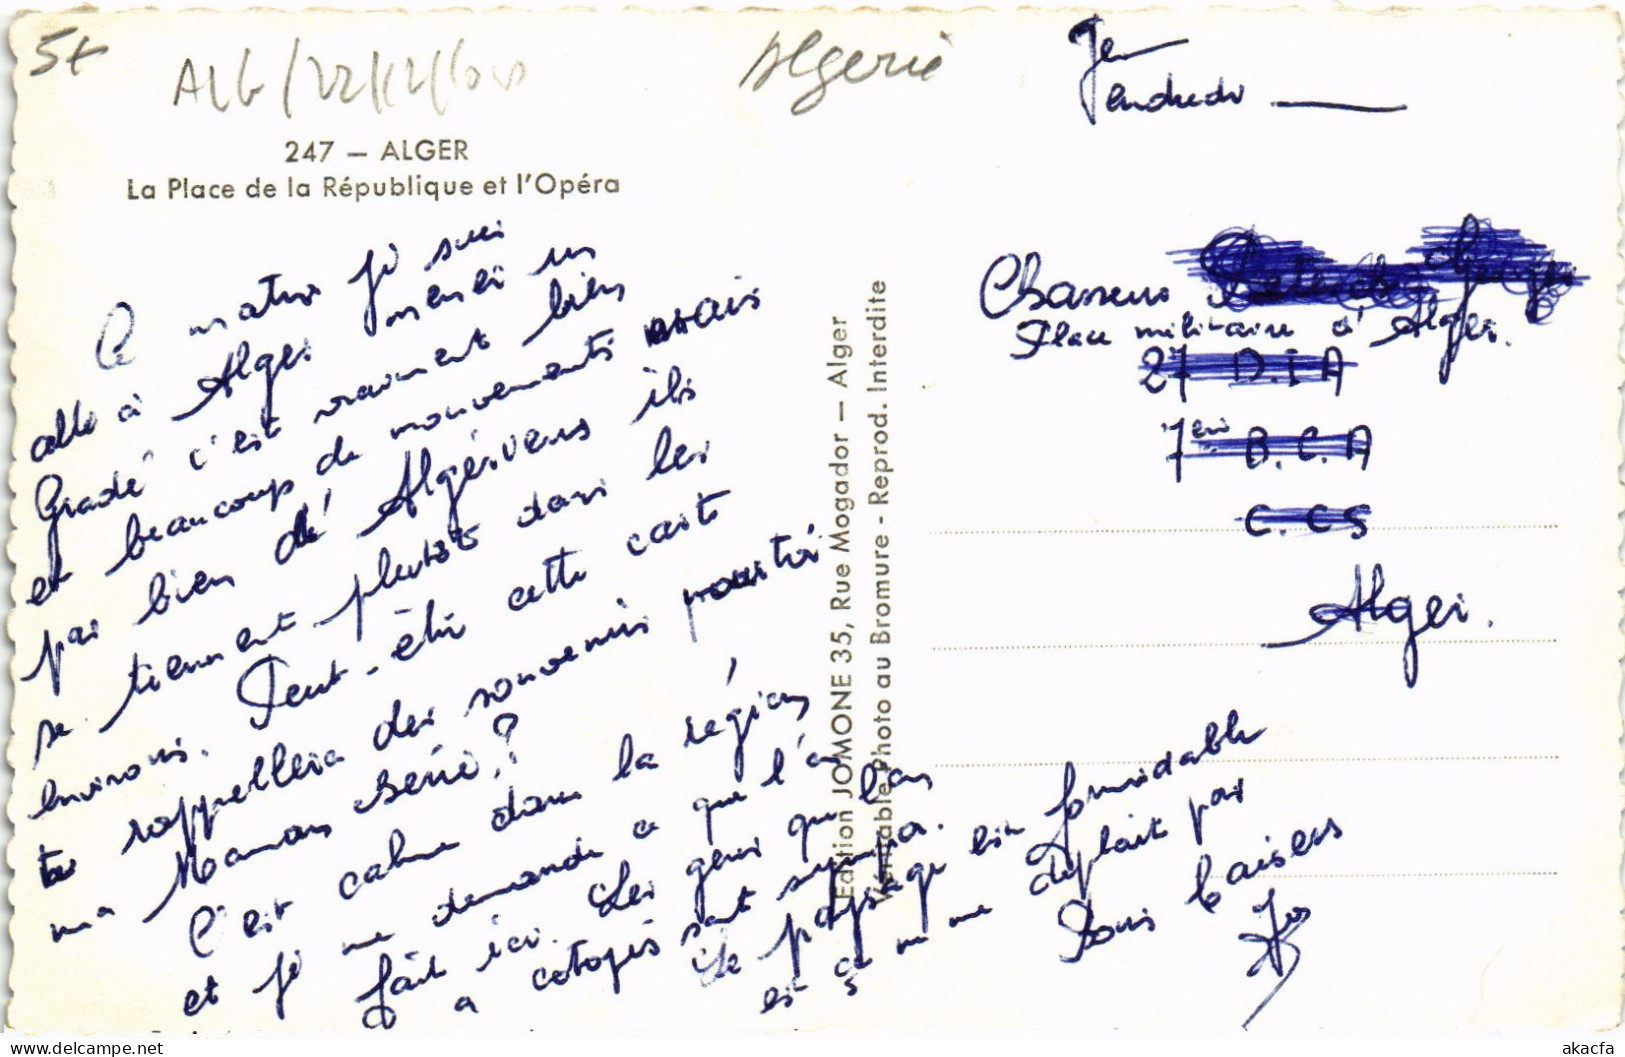 5+
Algerie
Jeu
Vendredi
247 — ALGER
La Place de la République et l'Opéra
Ce matin je suis
allé à Alger mener un
Gradé c'est vraiment bien
et beaucoup de mouvements mais
pas bien d'Algériens ils
se tiennent plutôt dans les
environs. Peut-être cette carte
te rappellera des souvenirs pourtoi
ma Maman chérie ?
C'est calme dans la région
et je me demande ce que l'on
fait ici. Les gens que l'on
a cotoyés sont sympa.
Le paysage est formidable
et ça ne me déplait pas
Bons baisers
Jos
Edition JOMONE 35, Rue Mogador — Alger
Véritable Photo au Bromure - Reprod. Interdite
Chasseur
Place militaire d'Alger.
27 D.I.A
7eme B.C.A
C.CS
Alger.
akacfa